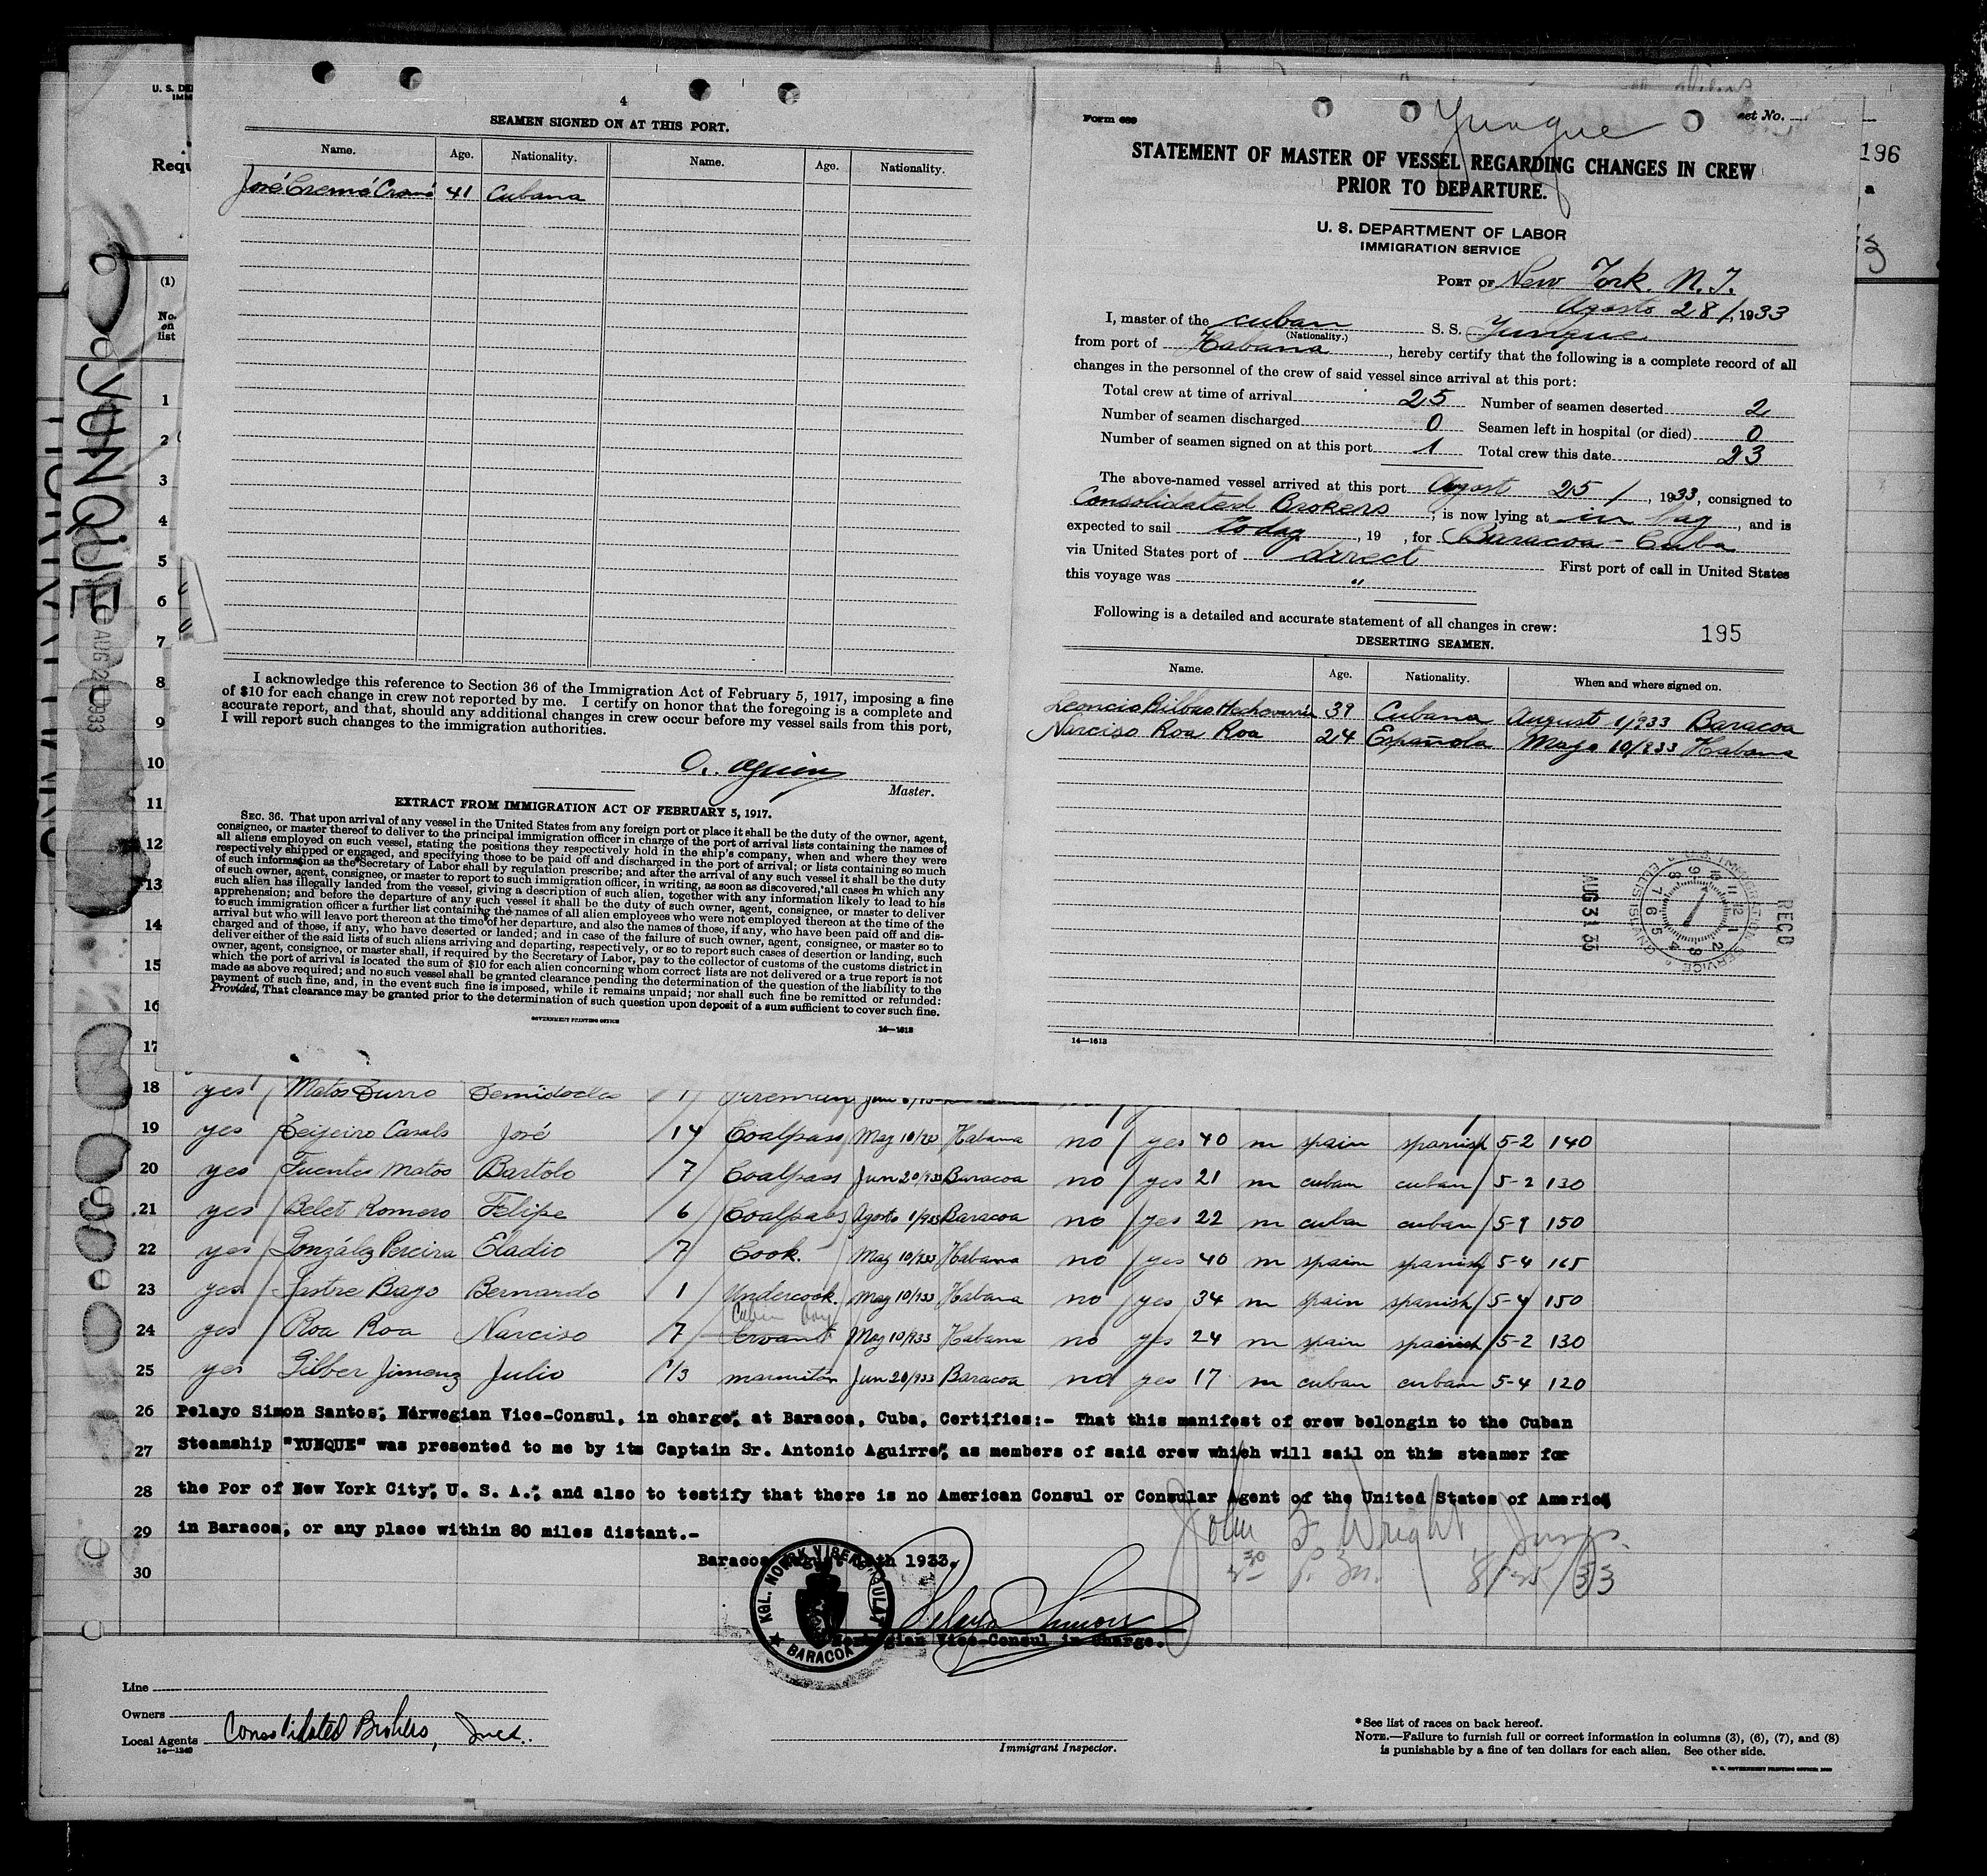 4
SEAMEN SIGNED ON AT THIS PORT.
Name. Age. Nationality. Name. Age. Nationality.
José 41 Cubana
I acknowledge this reference to Section 36 of the Immigration Act of February 5, 1917, imposing a fine
of $10 for each change in crew not reported by me. I certify on honor that the foregoing is a complete and
accurate report, and that, should any additional changes in crew occur before my vessel sails from this port,
I will report such changes to the immigration authorities.
Master.
EXTRACT FROM IMMIGRATION ACT OF FEBRUARY 5, 1917.
SEC. 36. That upon arrival of any vessel in the United States from any foreign port or place it shall be the duty of the owner, agent,
consignee, or master thereof to deliver to the principal immigration officer in charge of the port of arrival lists containing the names of
all aliens employed on such vessel, stating the positions they respectively hold in the ship's company, when and where they were
respectively shipped or engaged, and specifying those to be paid off and discharged in the port of arrival; or lists containing so much
of such information as the Secretary of Labor shall by regulation prescribe; and after the arrival of any such vessel it shall be the duty
of such owner, agent, consignee, or master to report to such immigration officer, in writing, as soon as discovered, all cases in which any
such alien has illegally landed from the vessel, giving a description of such alien, together with any information likely to lead to his
apprehension; and before the departure of any such vessel it shall be the duty of such owner, agent, consignee, or master to deliver
to such immigration officer a further list containing the names of all alien employees who were not employed thereon at the time of the
arrival but who will leave port thereon at the time of her departure, and also the names of those, if any, who have been paid off and dis-
charged and of those, if any, who have deserted or landed; and in case of the failure of such owner, agent, consignee, or master so to
deliver either of the said lists of such aliens arriving and departing, respectively, or so to report such cases of desertion or landing, such
owner, agent, consignee, or master shall, if required by the Secretary of Labor, pay to the collector of customs of the customs district in
which the port of arrival is located the sum of $10 for each alien concerning whom correct lists are not delivered or a true report is not
made as above required; and no such vessel shall be granted clearance pending the determination of the question of the liability to the
payment of such fine, and, in the event such fine is imposed, while it remains unpaid; nor shall such fine be remitted or refunded:
Provided, That clearance may be granted prior to the determination of such question upon deposit of a sum sufficient to cover such fine.
GOVERNMENT PRINTING OFFICE
14—1613
Yunque
STATEMENT OF MASTER OF VESSEL REGARDING CHANGES IN CREW
PRIOR TO DEPARTURE.
U. S. DEPARTMENT OF LABOR
IMMIGRATION SERVICE
PORT OF New York. N.Y.
Agosto 28/, 1933
I, master of the cuban S. S. Yunque
(Nationality.)
from port of Habana, hereby certify that the following is a complete record of all
changes in the personnel of the crew of said vessel since arrival at this port:
Total crew at time of arrival 25 Number of seamen deserted 2
Number of seamen discharged 0 Seamen left in hospital (or died) 0
Number of seamen signed on at this port 1 Total crew this date 23
The above-named vessel arrived at this port Agost 25/, 1933, consigned to
Consolidated Brokers, is now lying at in bay, and is
expected to sail today, 19 , for Baracoa - Cuba
via United States port of direct First port of call in United States
this voyage was "
Following is a detailed and accurate statement of all changes in crew:
195
DESERTING SEAMEN.
Name. Age. Nationality. When and where signed on.
Leoncio Bilbao Hechevarria 39 Cubana August 1/933 Baracoa
Narciso Roa Roa 24 Española Mayo 10/933 Habana
RECD
AUG 31 33
14—1613
196
YUNQUE
(1)
No. on list
1
2
3
4
5
6
7
8
9
10
11
12
13
14
15
16
17
18 yes Matos 1 Fireman
19 yes Teijeiro Casals José 14 Coalpass May 10/33 Habana no yes 40 m spain spanish 5-2 140
20 yes Fuentes Matos Bartolo 7 Coalpass Jun 20/933 Baracoa no yes 21 m cuban cuban 5-2 130
21 yes Belet Romero Felipe 6 Coalpass Agosto 1/933 Baracoa no yes 22 m cuban cuban 5-9 150
22 yes González Pereira Eladio 7 Cook. May 10/933 Habana no yes 40 m spain spanish 5-4 165
23 yes Sastre Bernardo 1 Undercook. May 10/933 Habana no yes 34 m spain spanish 5-4 150
24 yes Roa Roa Narciso 7 Cabin boy May 10/933 Habana no yes 24 m spain spanish 5-2 130
25 yes Gilber Jimenz Julio 1/3 marmiton Jun 20/933 Baracoa no yes 17 m cuban cuban 5-4 120
26 Pelayo Simon Santos, Norwegian Vice-Consul, in charge, at Baracoa, Cuba, Certifies:- That this manifest of crew belongin to the Cuban
27 Steamship "YUNQUE" was presented to me by its Captain Sr. Antonio Aguirre, as members of said crew which will sail on this steamer for
28 the Por of New York City, U. S. A., and also to testify that there is no American Consul or Consular Agent of the United States of America
29 in Baracoa, or any place within 80 miles distant.-
30
John F Wright
P.M. 8/25/33
KGL. NORSK VISEKONSULAT
BARACOA
Pelayo Simon
Norwegian Vice-Consul in Charge.
Line
Owners
Local Agents Consolidated Brokers, Inc.
14—1240
Immigrant Inspector.
*See list of races on back hereof.
NOTE.—Failure to furnish full or correct information in columns (3), (6), (7), and (8)
is punishable by a fine of ten dollars for each alien. See other side.